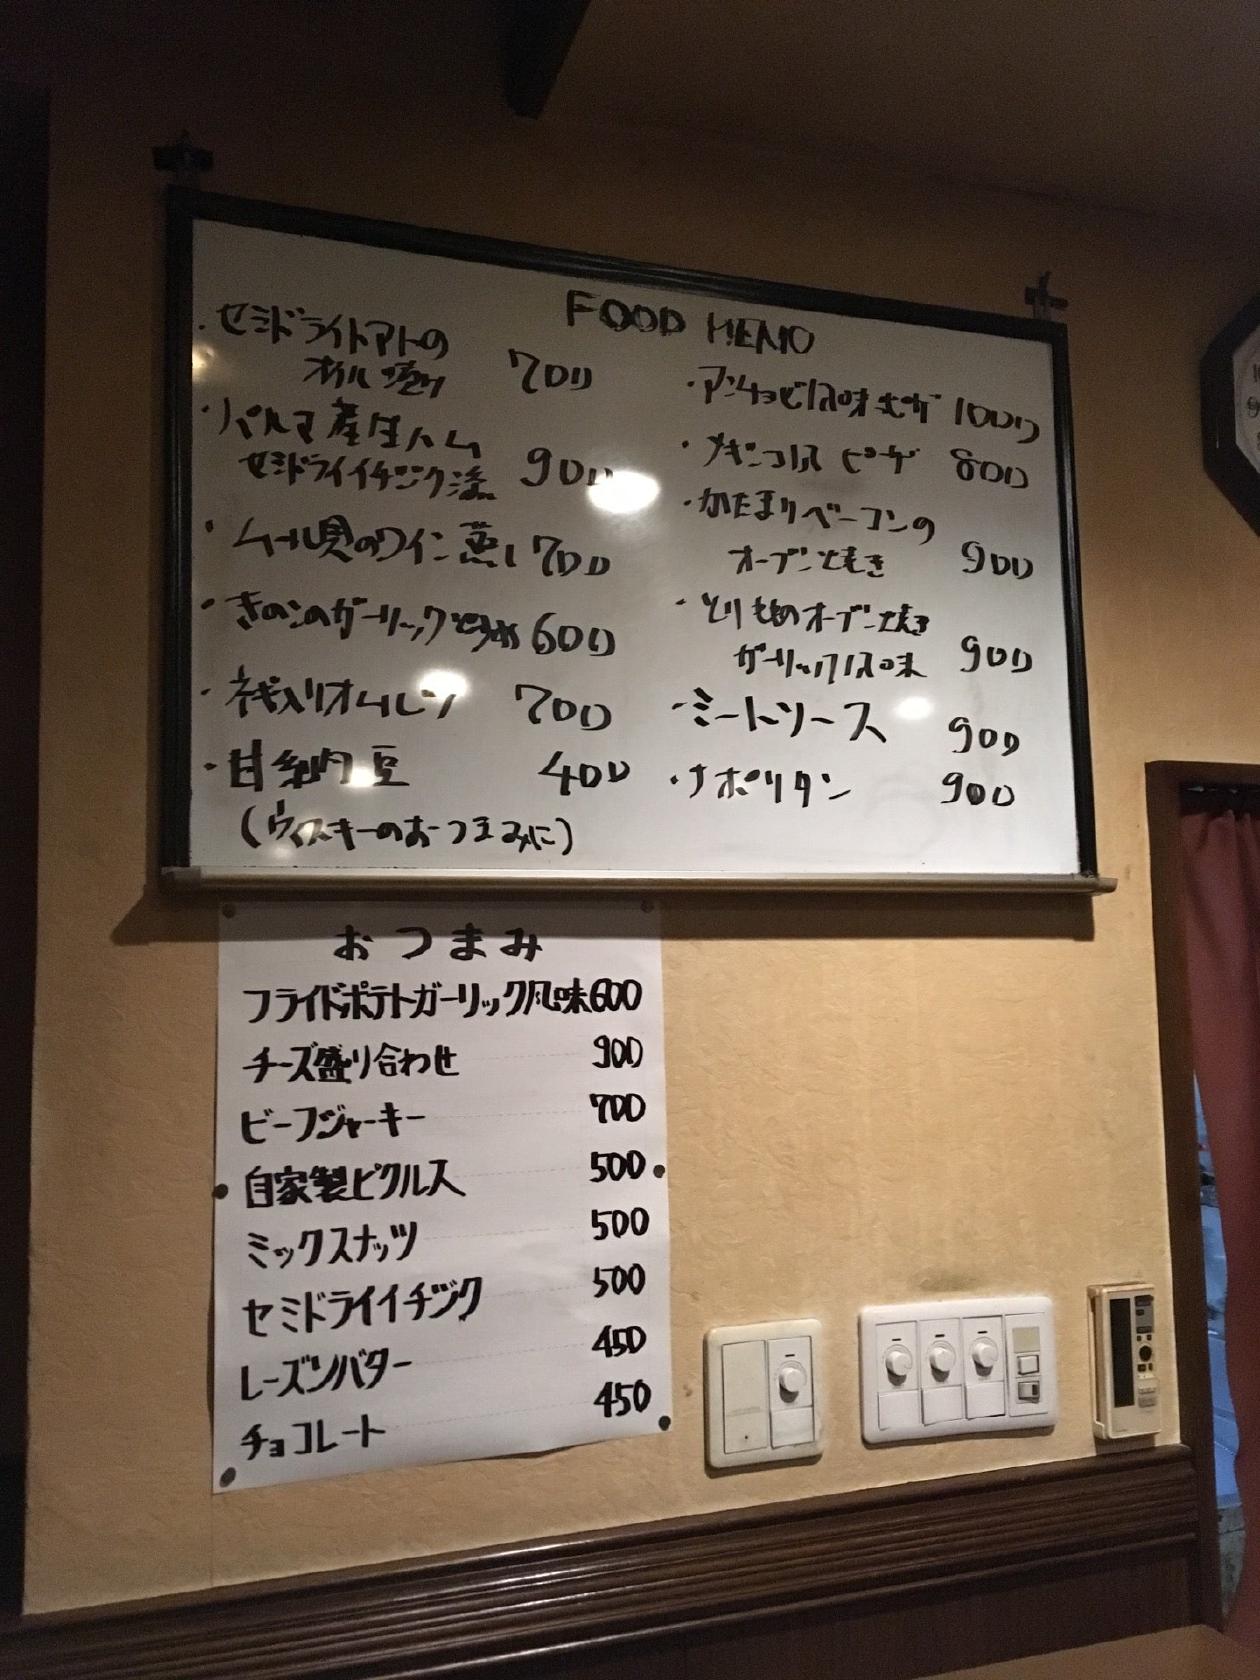 FOOD MEMO
・セミドライトマトの
オイル漬け 700
・パルマ産生ハム
セミドライイチジク添え 900
・ムール貝のワイン蒸し 700
・きのこのガーリック炒め 600
・ネギ入りオムレツ 700
・甘納豆 400
(ウィスキーのおつまみに)
・アンチョビ風味ピザ 1000
・メキシコ風ピザ 800
・かたまりベーコンの
オーブン焼き 900
・とりもものオーブン焼き
ガーリック風味 900
・ミートソース 900
・ナポリタン 900
おつまみ
フライドポテトガーリック風味 600
チーズ盛り合わせ 900
ビーフジャーキー 700
自家製ピクルス 500
ミックスナッツ 500
セミドライイチヂク 500
レーズンバター 450
チョコレート 450